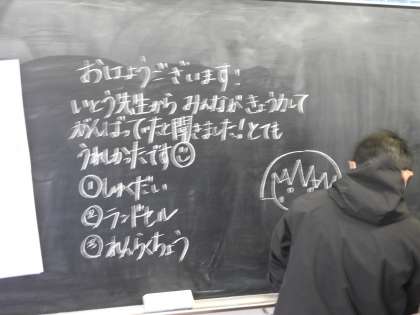 おはようございます!
いとう先生から みんなが きょう力して
がんばっていたと聞きました!とても
うれしかったです
①しゅくだい
②ランドセル
③れんらくちょう